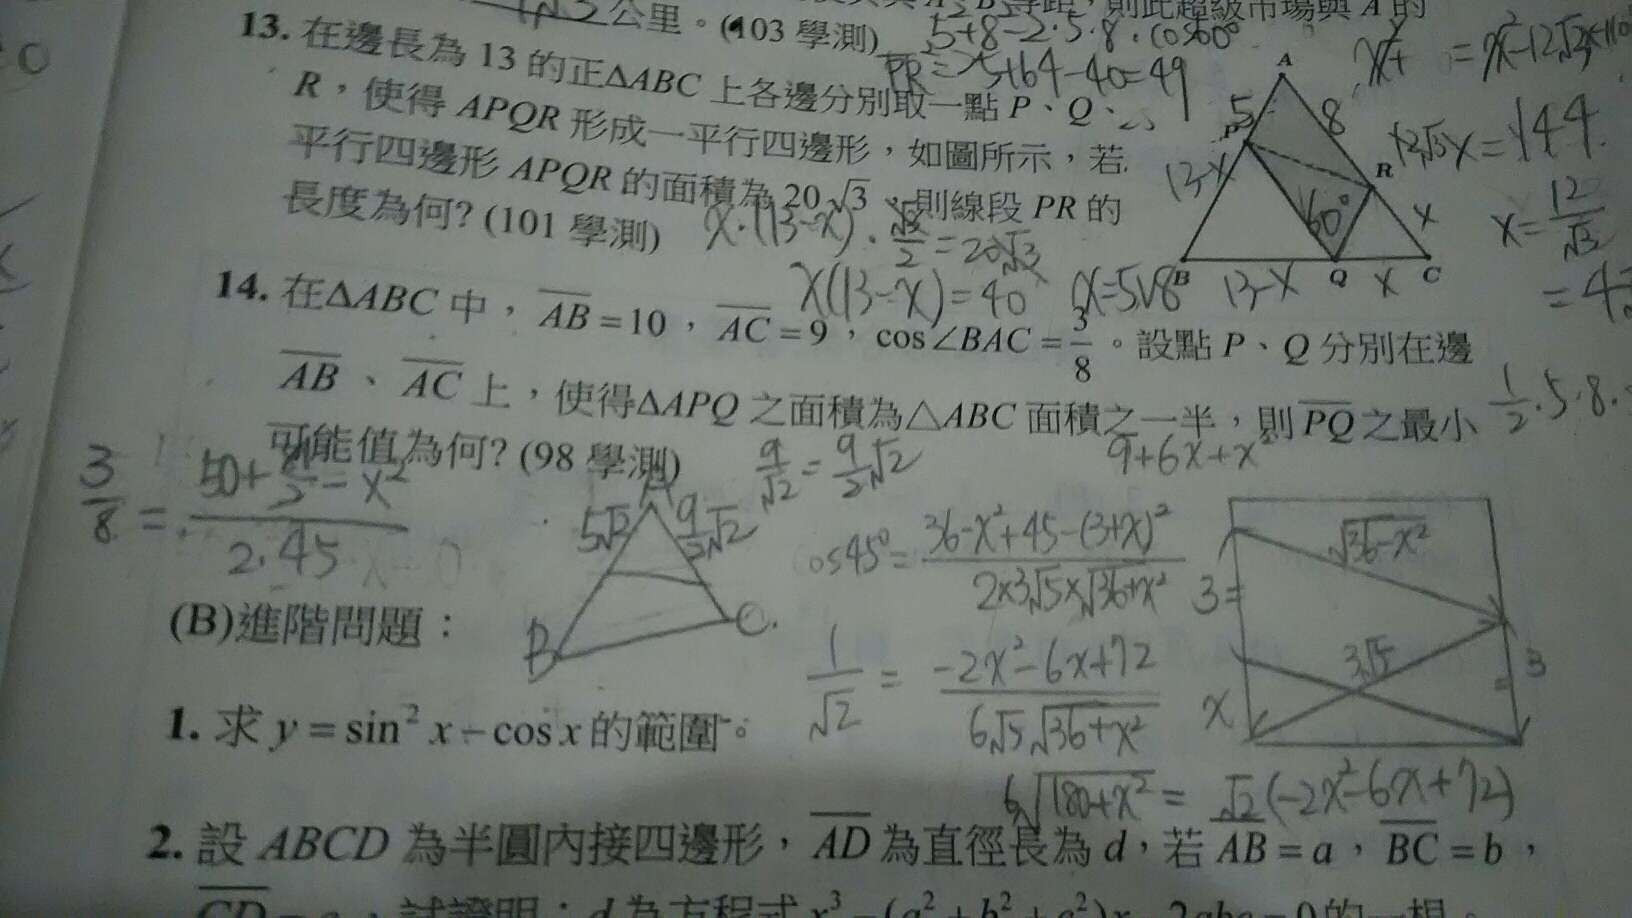 公里。(103 學測)
5+8-2·5·8·cos60°
13. 在邊長為 13 的正ΔABC 上各邊分別取一點 P、Q、
PR = 25+64-40=49
R,使得 APQR 形成一平行四邊形,如圖所示,若
平行四邊形 APQR 的面積為 20√3,則線段 PR 的
長度為何? (101 學測)
x·(13-x)·√3/2=20√3
x(13-x)=40
A
5
8
P
R
13-x
60°
x
B
13-x
Q
x
C
12√3x=144
x=12/√3
14. 在ΔABC 中,AB=10,AC=9,cos∠BAC=3/8。設點 P、Q 分別在邊
AB、AC 上,使得ΔAPQ 之面積為△ABC 面積之一半,則 PQ 之最小
可能值為何? (98 學測)
9/√2=9/2√2
9+6x+x²
1/2·5·8·
A
5√2
9/2√2
B
C
cos45°=36-x²+45-(3+x)²/2×3√5×√36+x²
1/√2=-2x²-6x+72/6√5√36+x²
6√180+x²=√2(-2x²-6x+72)
√36-x²
3
3√5
3
x
(B)進階問題:
1. 求 y=sin²x-cosx 的範圍。
2. 設 ABCD 為半圓內接四邊形,AD 為直徑長為 d,若 AB=a,BC=b,